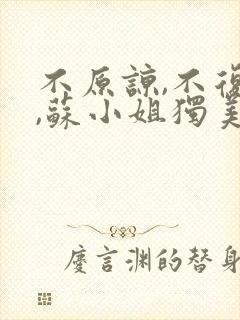 不原諒,不復
,蘇小姐獨美
慶言渊的替身